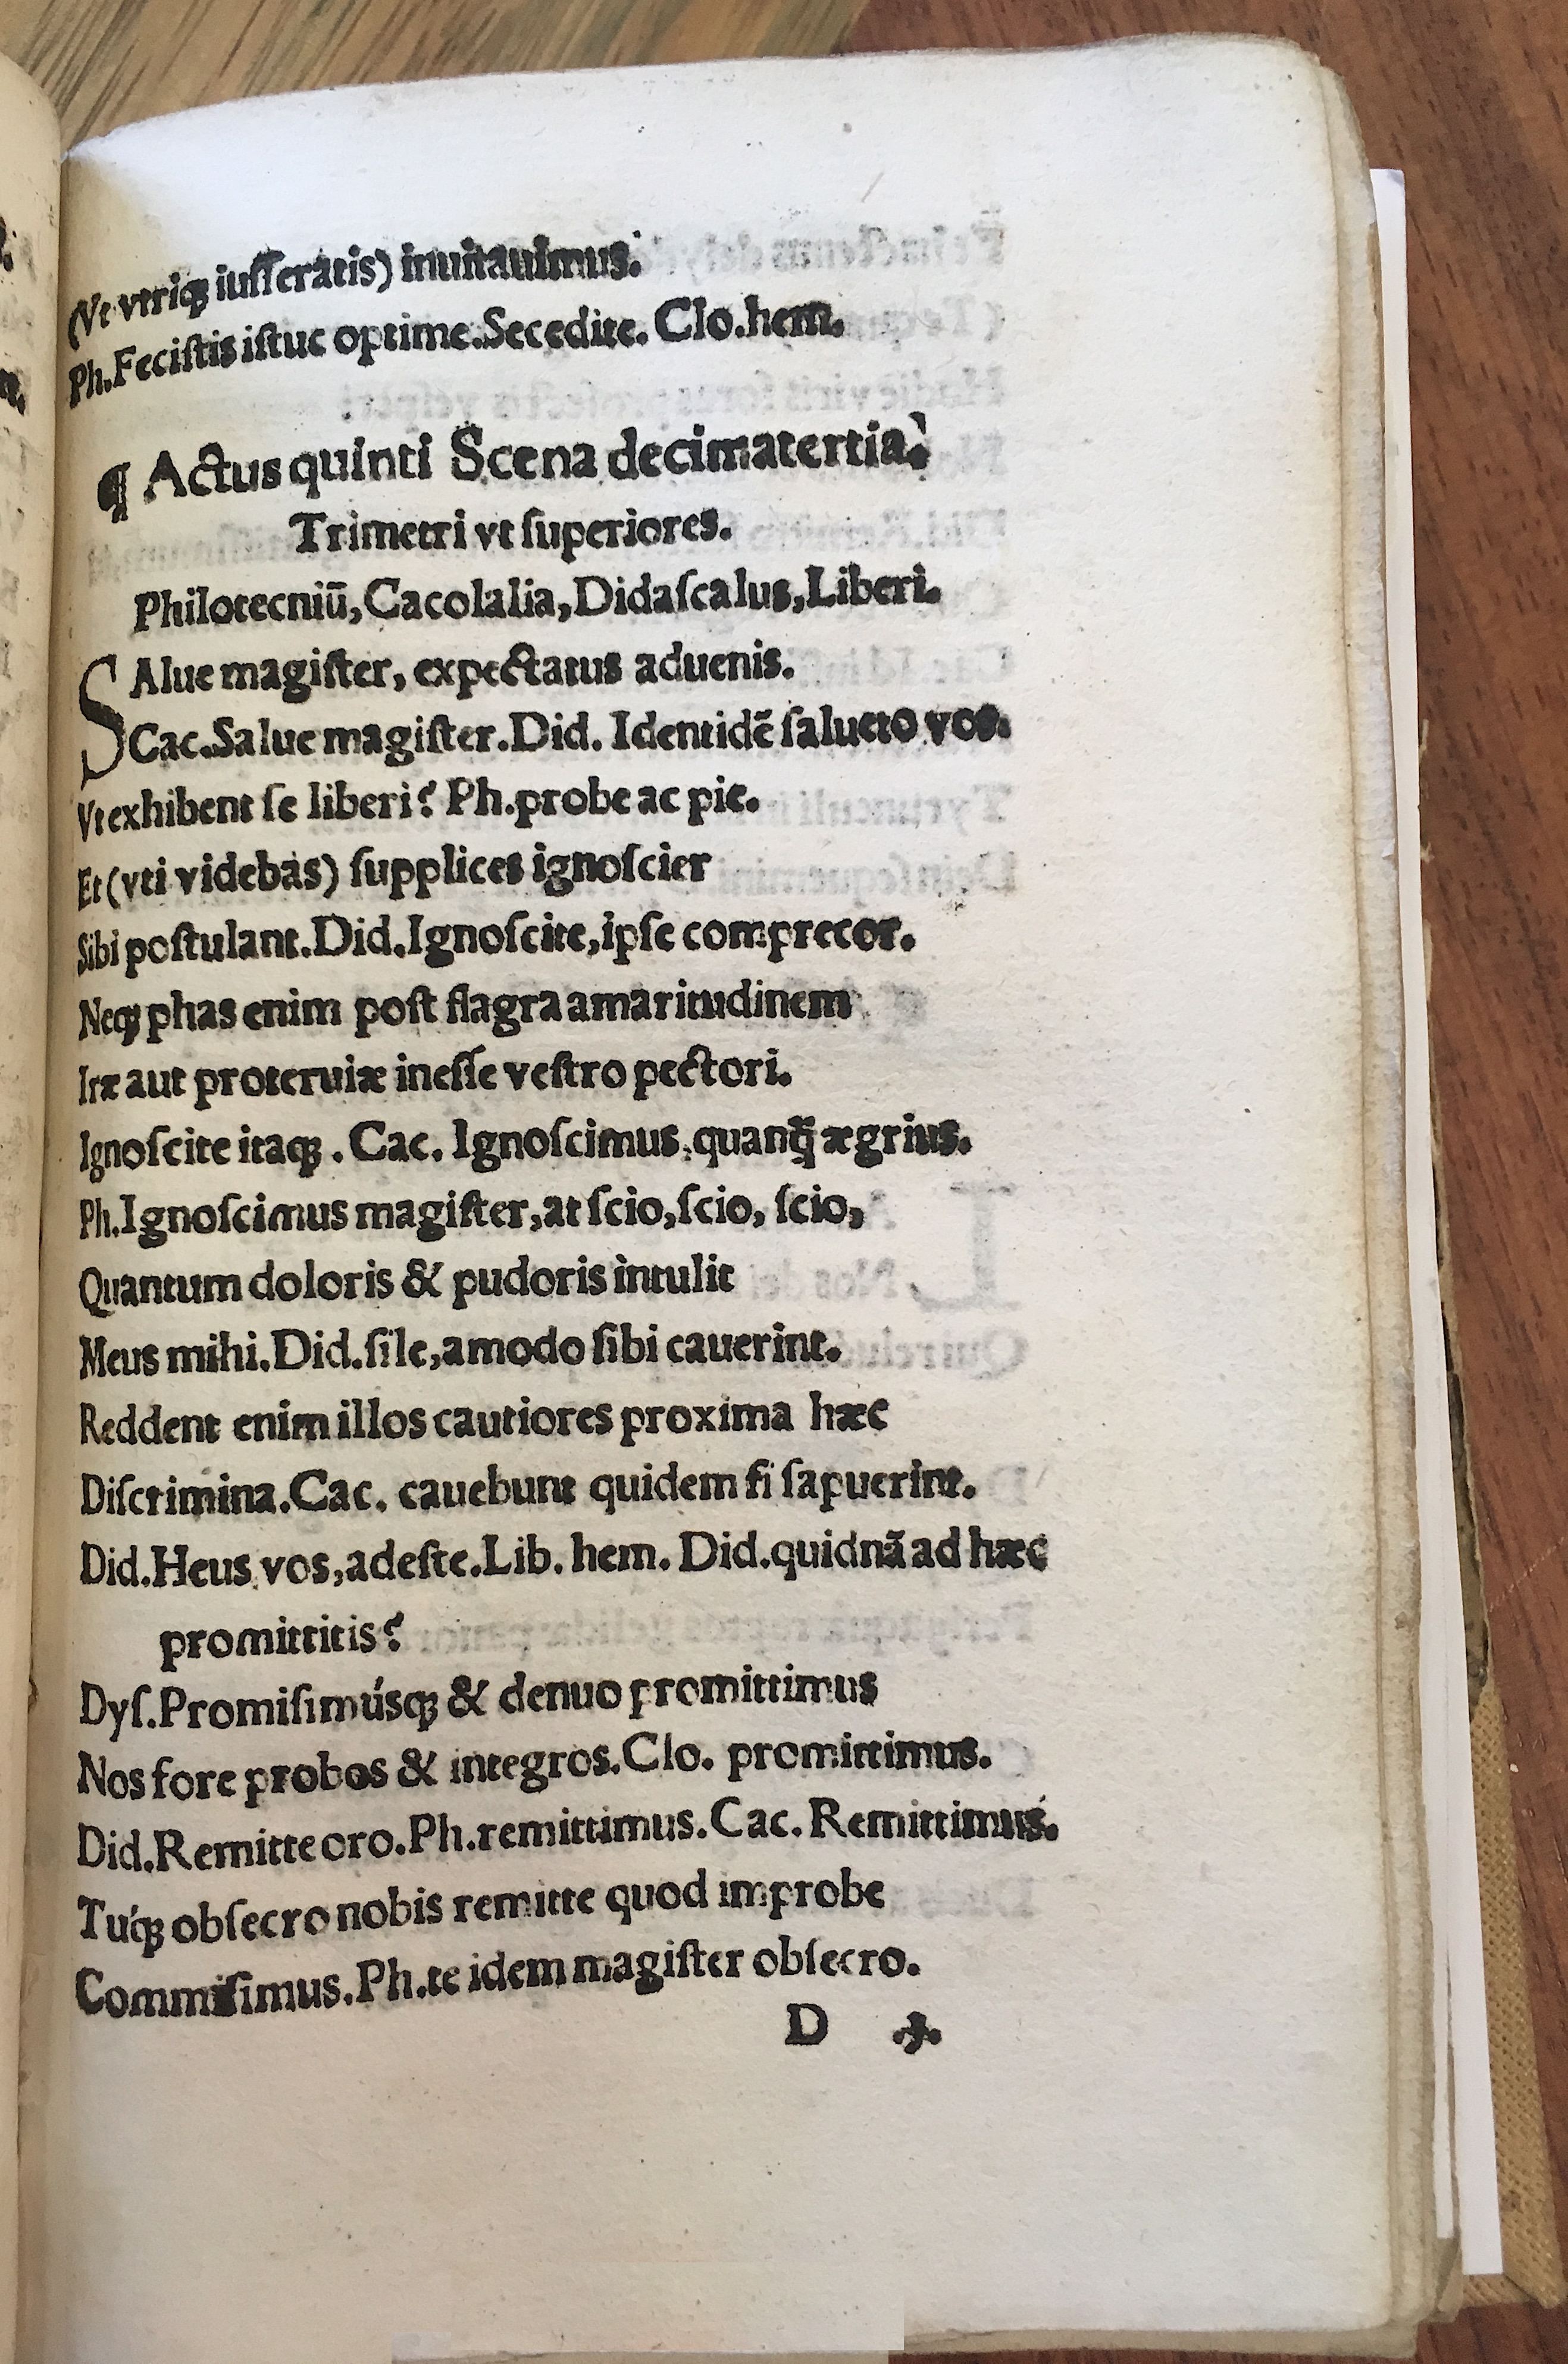 (Vt vtriqꝫ iuſſeratis) inuitauimus.
Ph.Feciſtis iſtuc optime.Secedite. Clo.hem.
¶ Actus quinti Scena decimatertia.
Trimetri vt ſuperiores.
Philotecniū, Cacolalia, Didaſcalus, Liberi.
SAlue magiſter, expectatus aduenis.
Cac.Salue magiſter.Did. Identidē ſalueto vos.
Vt exhibent ſe liberi? Ph.probe ac pie.
Et (vti videbas) ſupplices ignoſcier
Sibi poſtulant.Did.Ignoſcite, ipſe comprecor.
Neqꝫ phas enim poſt flagra amaritudinem
Iræ aut proteruiæ ineſſe veſtro pectori.
Ignoſcite itaqꝫ. Cac. Ignoſcimus, quanq̃ ægrius.
Ph.Ignoſcimus magiſter, at ſcio, ſcio, ſcio,
Quantum doloris & pudoris intulit
Meus mihi.Did.ſile, amodo ſibi cauerint.
Reddent enim illos cautiores proxima hæc
Diſcrimina.Cac. cauebunt quidem ſi ſapuerint.
Did.Heus vos, adeſte.Lib. hem. Did.quidnā ad hæc
promittitis?
Dyſ.Promiſimúsqꝫ & denuo promittimus
Nos fore probos & integros.Clo. promittimus.
Did.Remitte oro.Ph.remittimus.Cac. Remittimus.
Tuqꝫ́ obſecro nobis remitte quod improbe
Commiſimus.Ph.te idem magiſter obſecro.
D